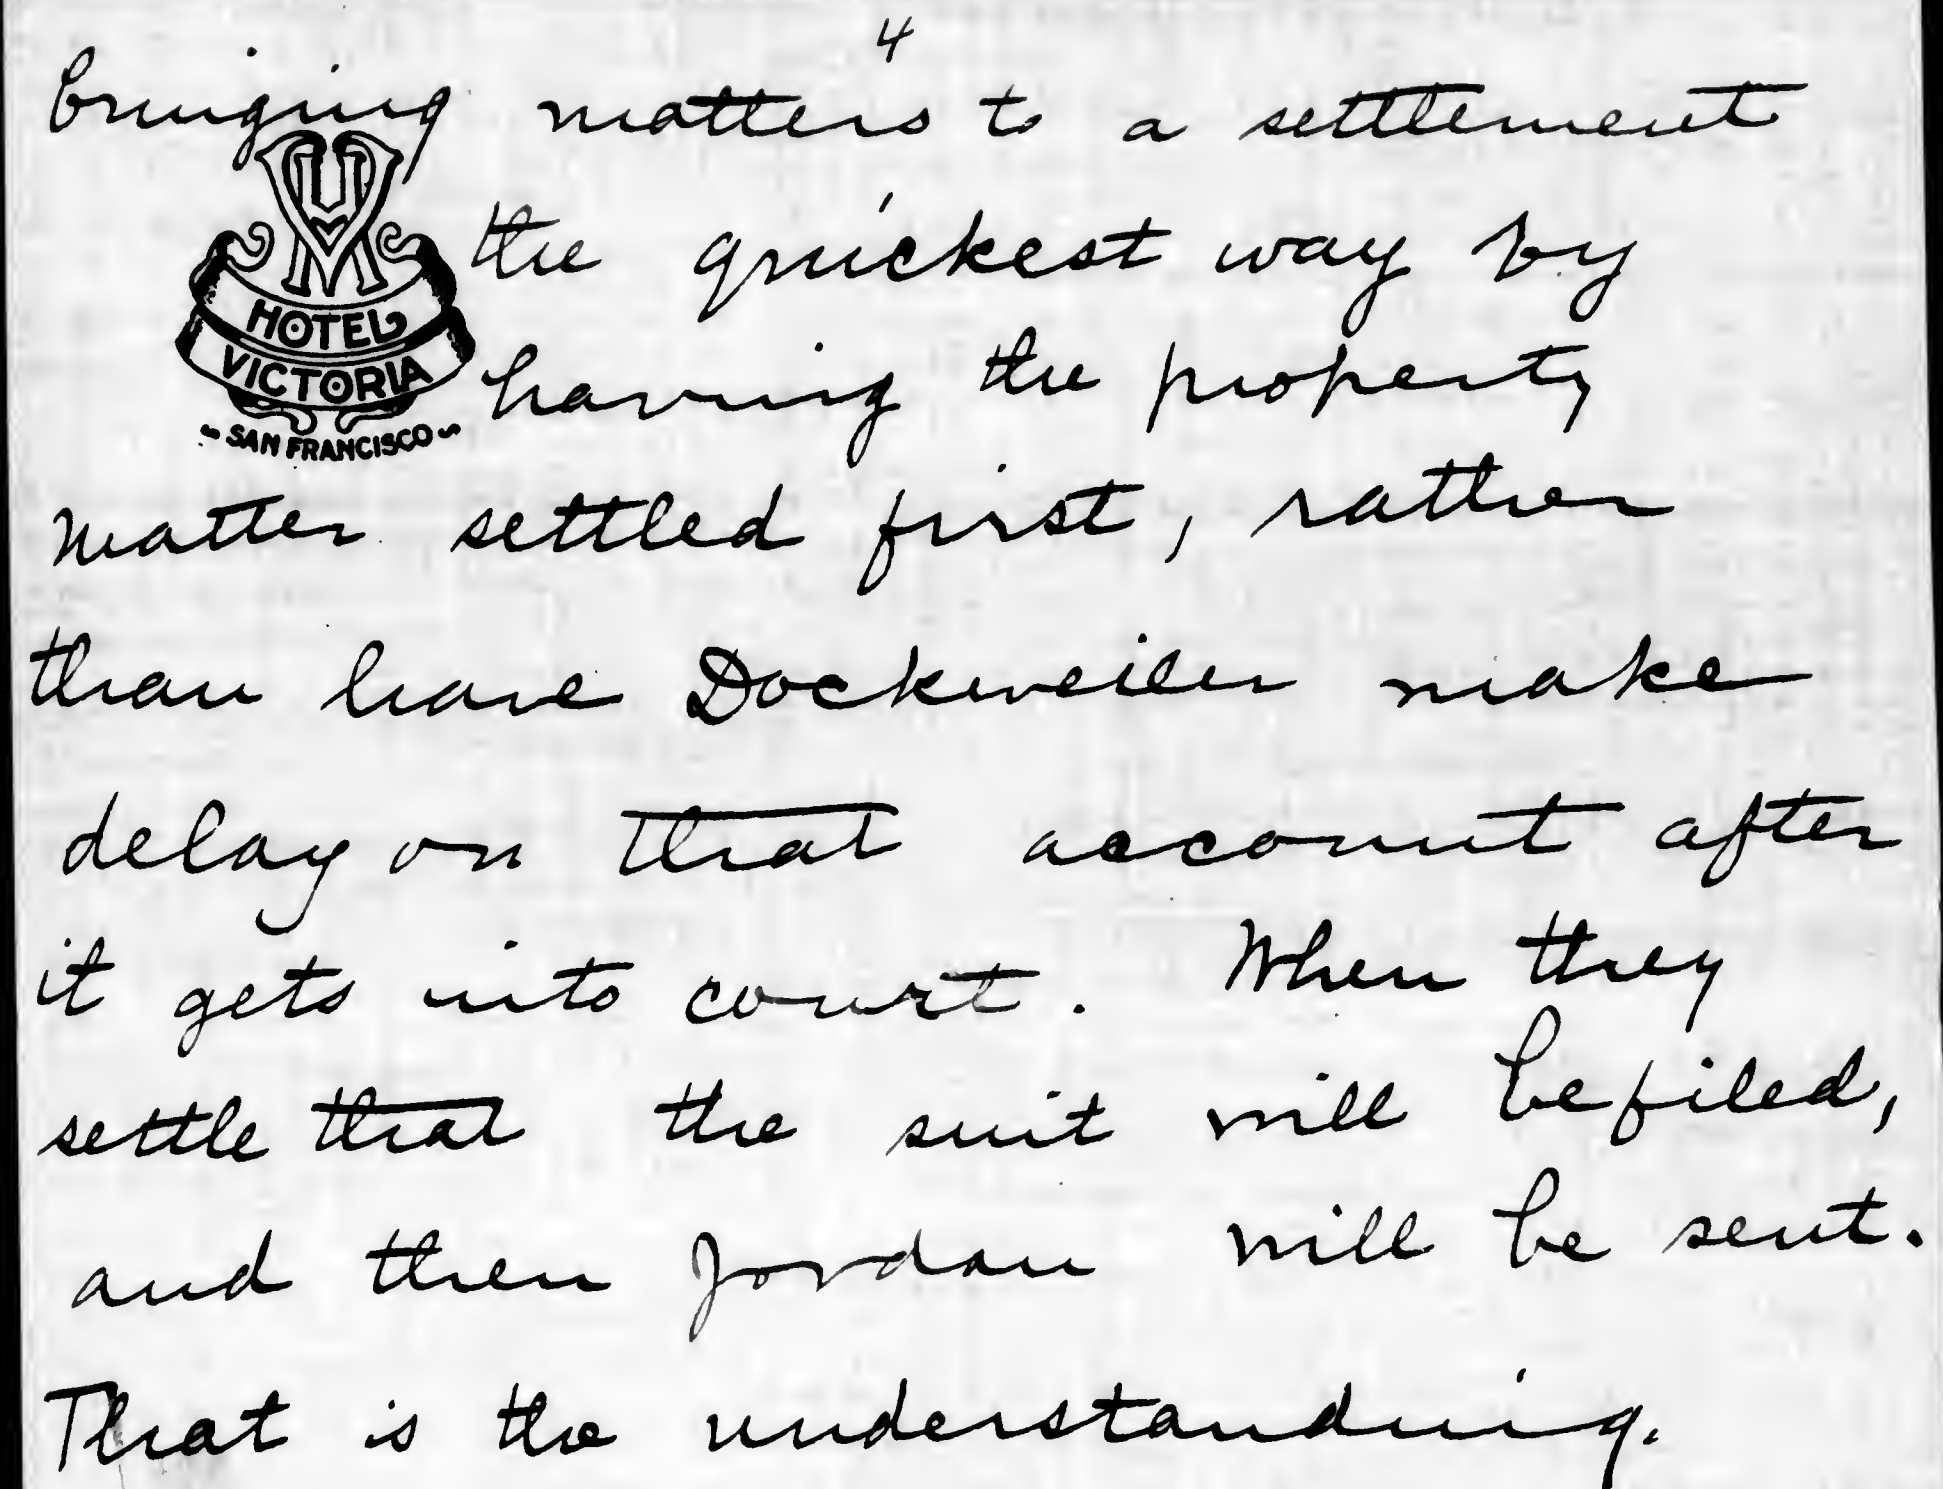 4
bringing matters to a settlement
HOTEL
VICTORIA
SAN FRANCISCO
the quickest way by
having the property
matter settled first, rather
than have Dockweiler make
delay on that account after
it gets into court. When they
settle that the suit will be filed,
and then Jordan will be sent.
That is the understanding.